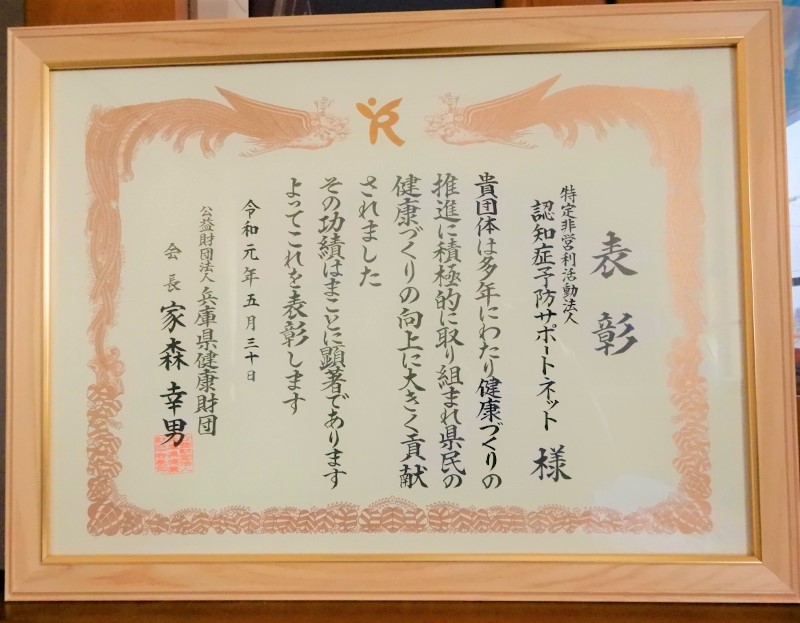 表彰
特定非営利活動法人
認知症予防サポートネット 様
貴団体は多年にわたり健康づくりの
推進に積極的に取り組まれ県民の
健康づくりの向上に大きく貢献
されました
その功績はまことに顕著であります
よってこれを表彰します
令和元年五月三十日
公益財団法人 兵庫県健康財団
会長 家森幸男